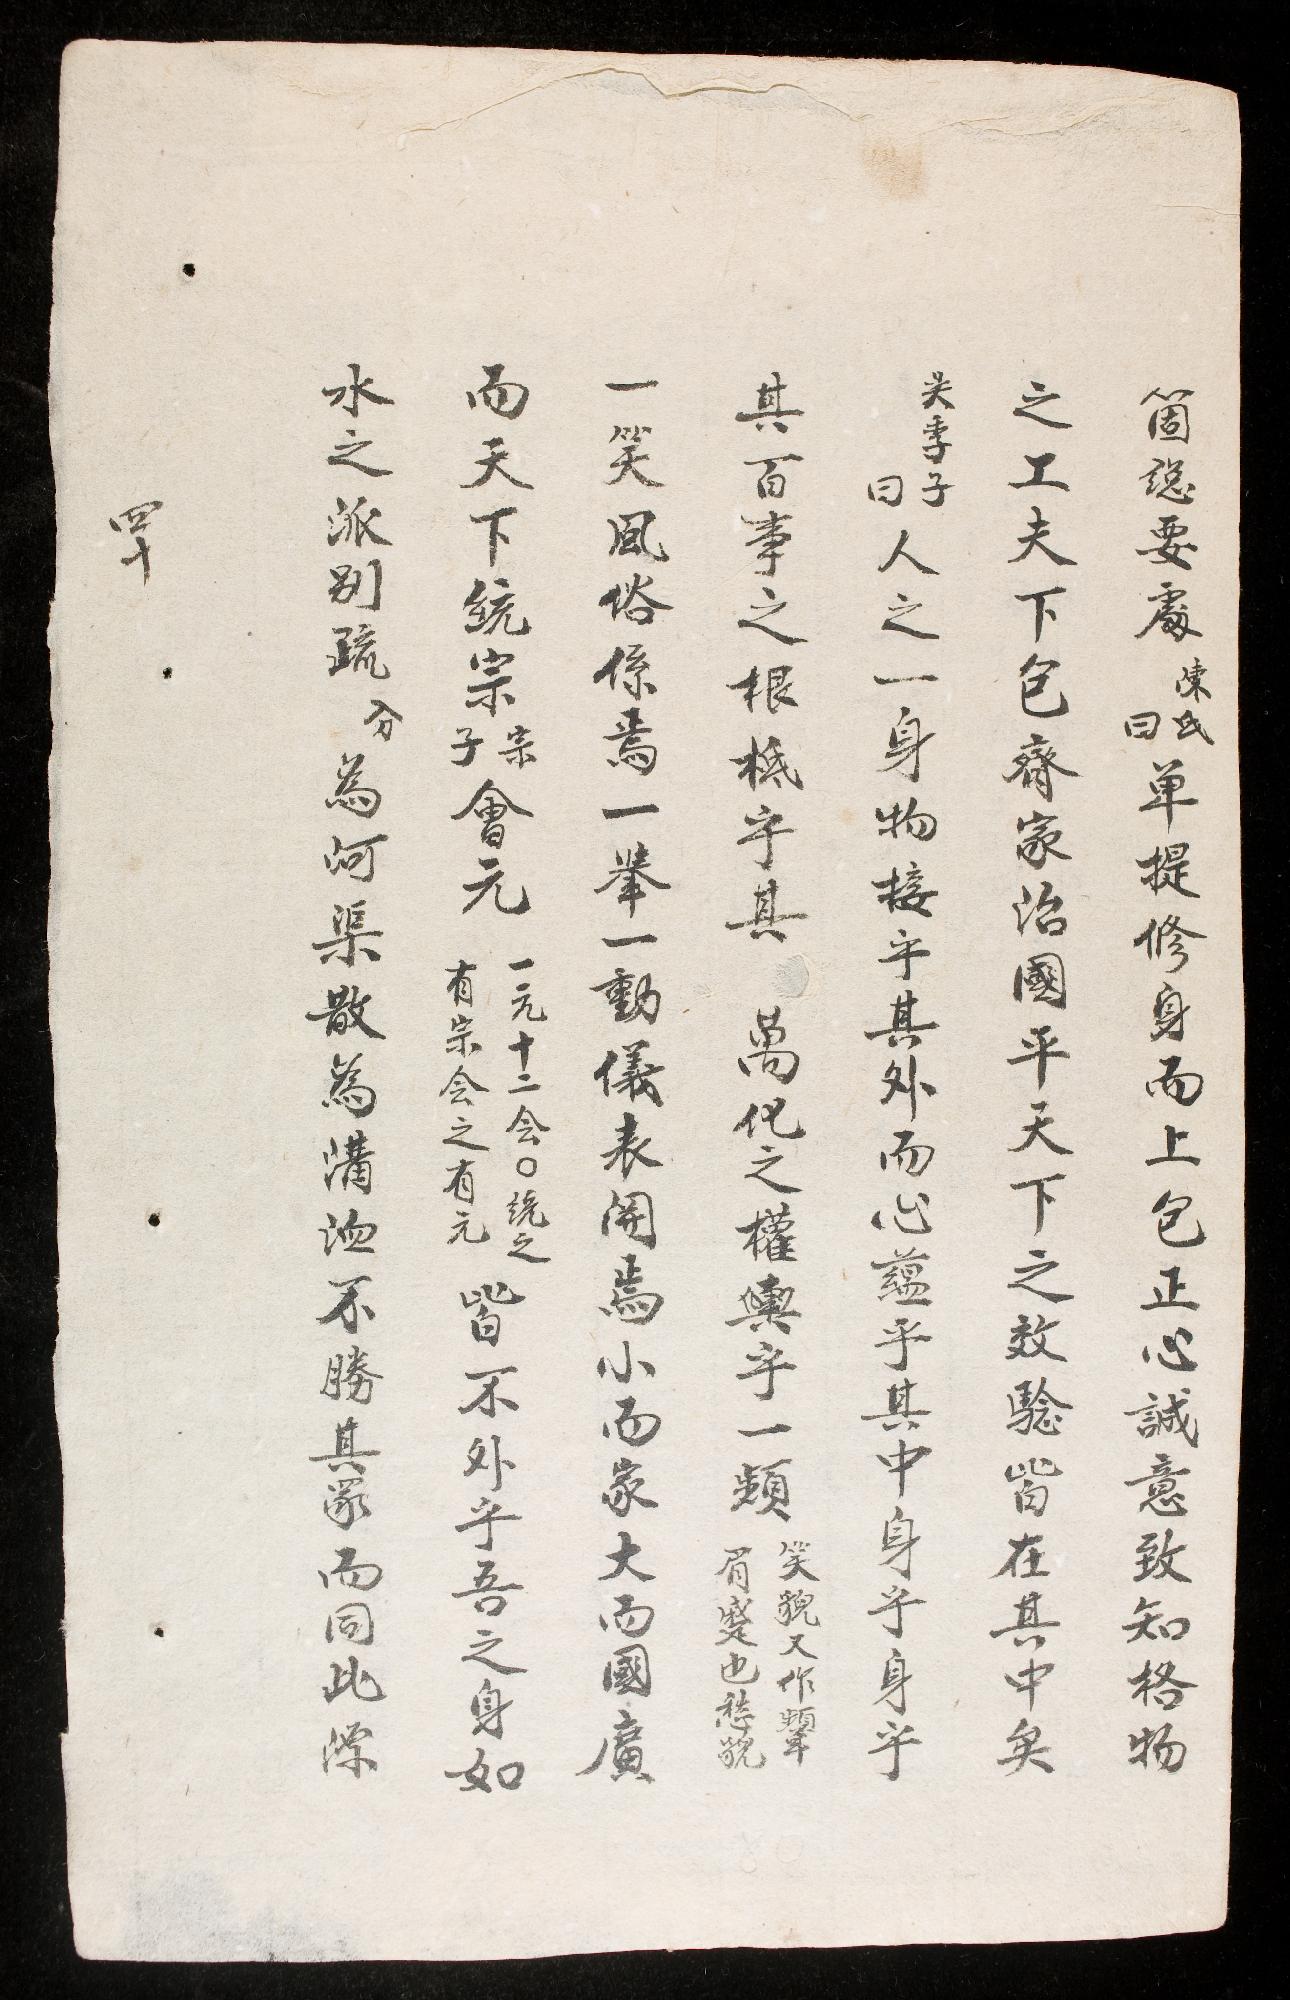 箇總要處陳氏曰單提修身而上包正心誠意致知格物
之工夫下包齊家治國平天下之效驗皆在其中矣
吴季子曰人之一身物接乎其外而心蘊乎其中身乎身乎
其百事之根柢乎其萬化之權輿乎一頻笑貌又作顰眉蹙也愁貌
一笑風俗係焉一舉一動儀表関焉小而家大而國廣
而天下統宗宗子會元一元十二会〇統之有宗会之有元皆不外乎吾之身如
水之派别疏分為河渠散為溝洫不勝其衆而同此源
四十